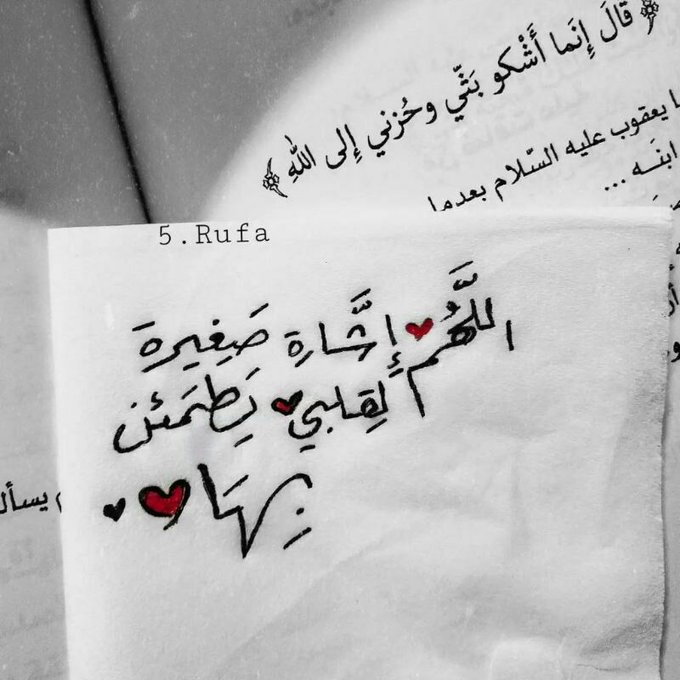 ﴿قالَ إِنَما أَشْكو بَثّي وحُزني إِلى اللهِ﴾
يعقوب عليه السّلام بعدما
ابنَـه ...
5.Rufa
اللَّهُم إِشَّارةِ صَغِيرةَ
لِقلبي يَطمَئن
بِهَا